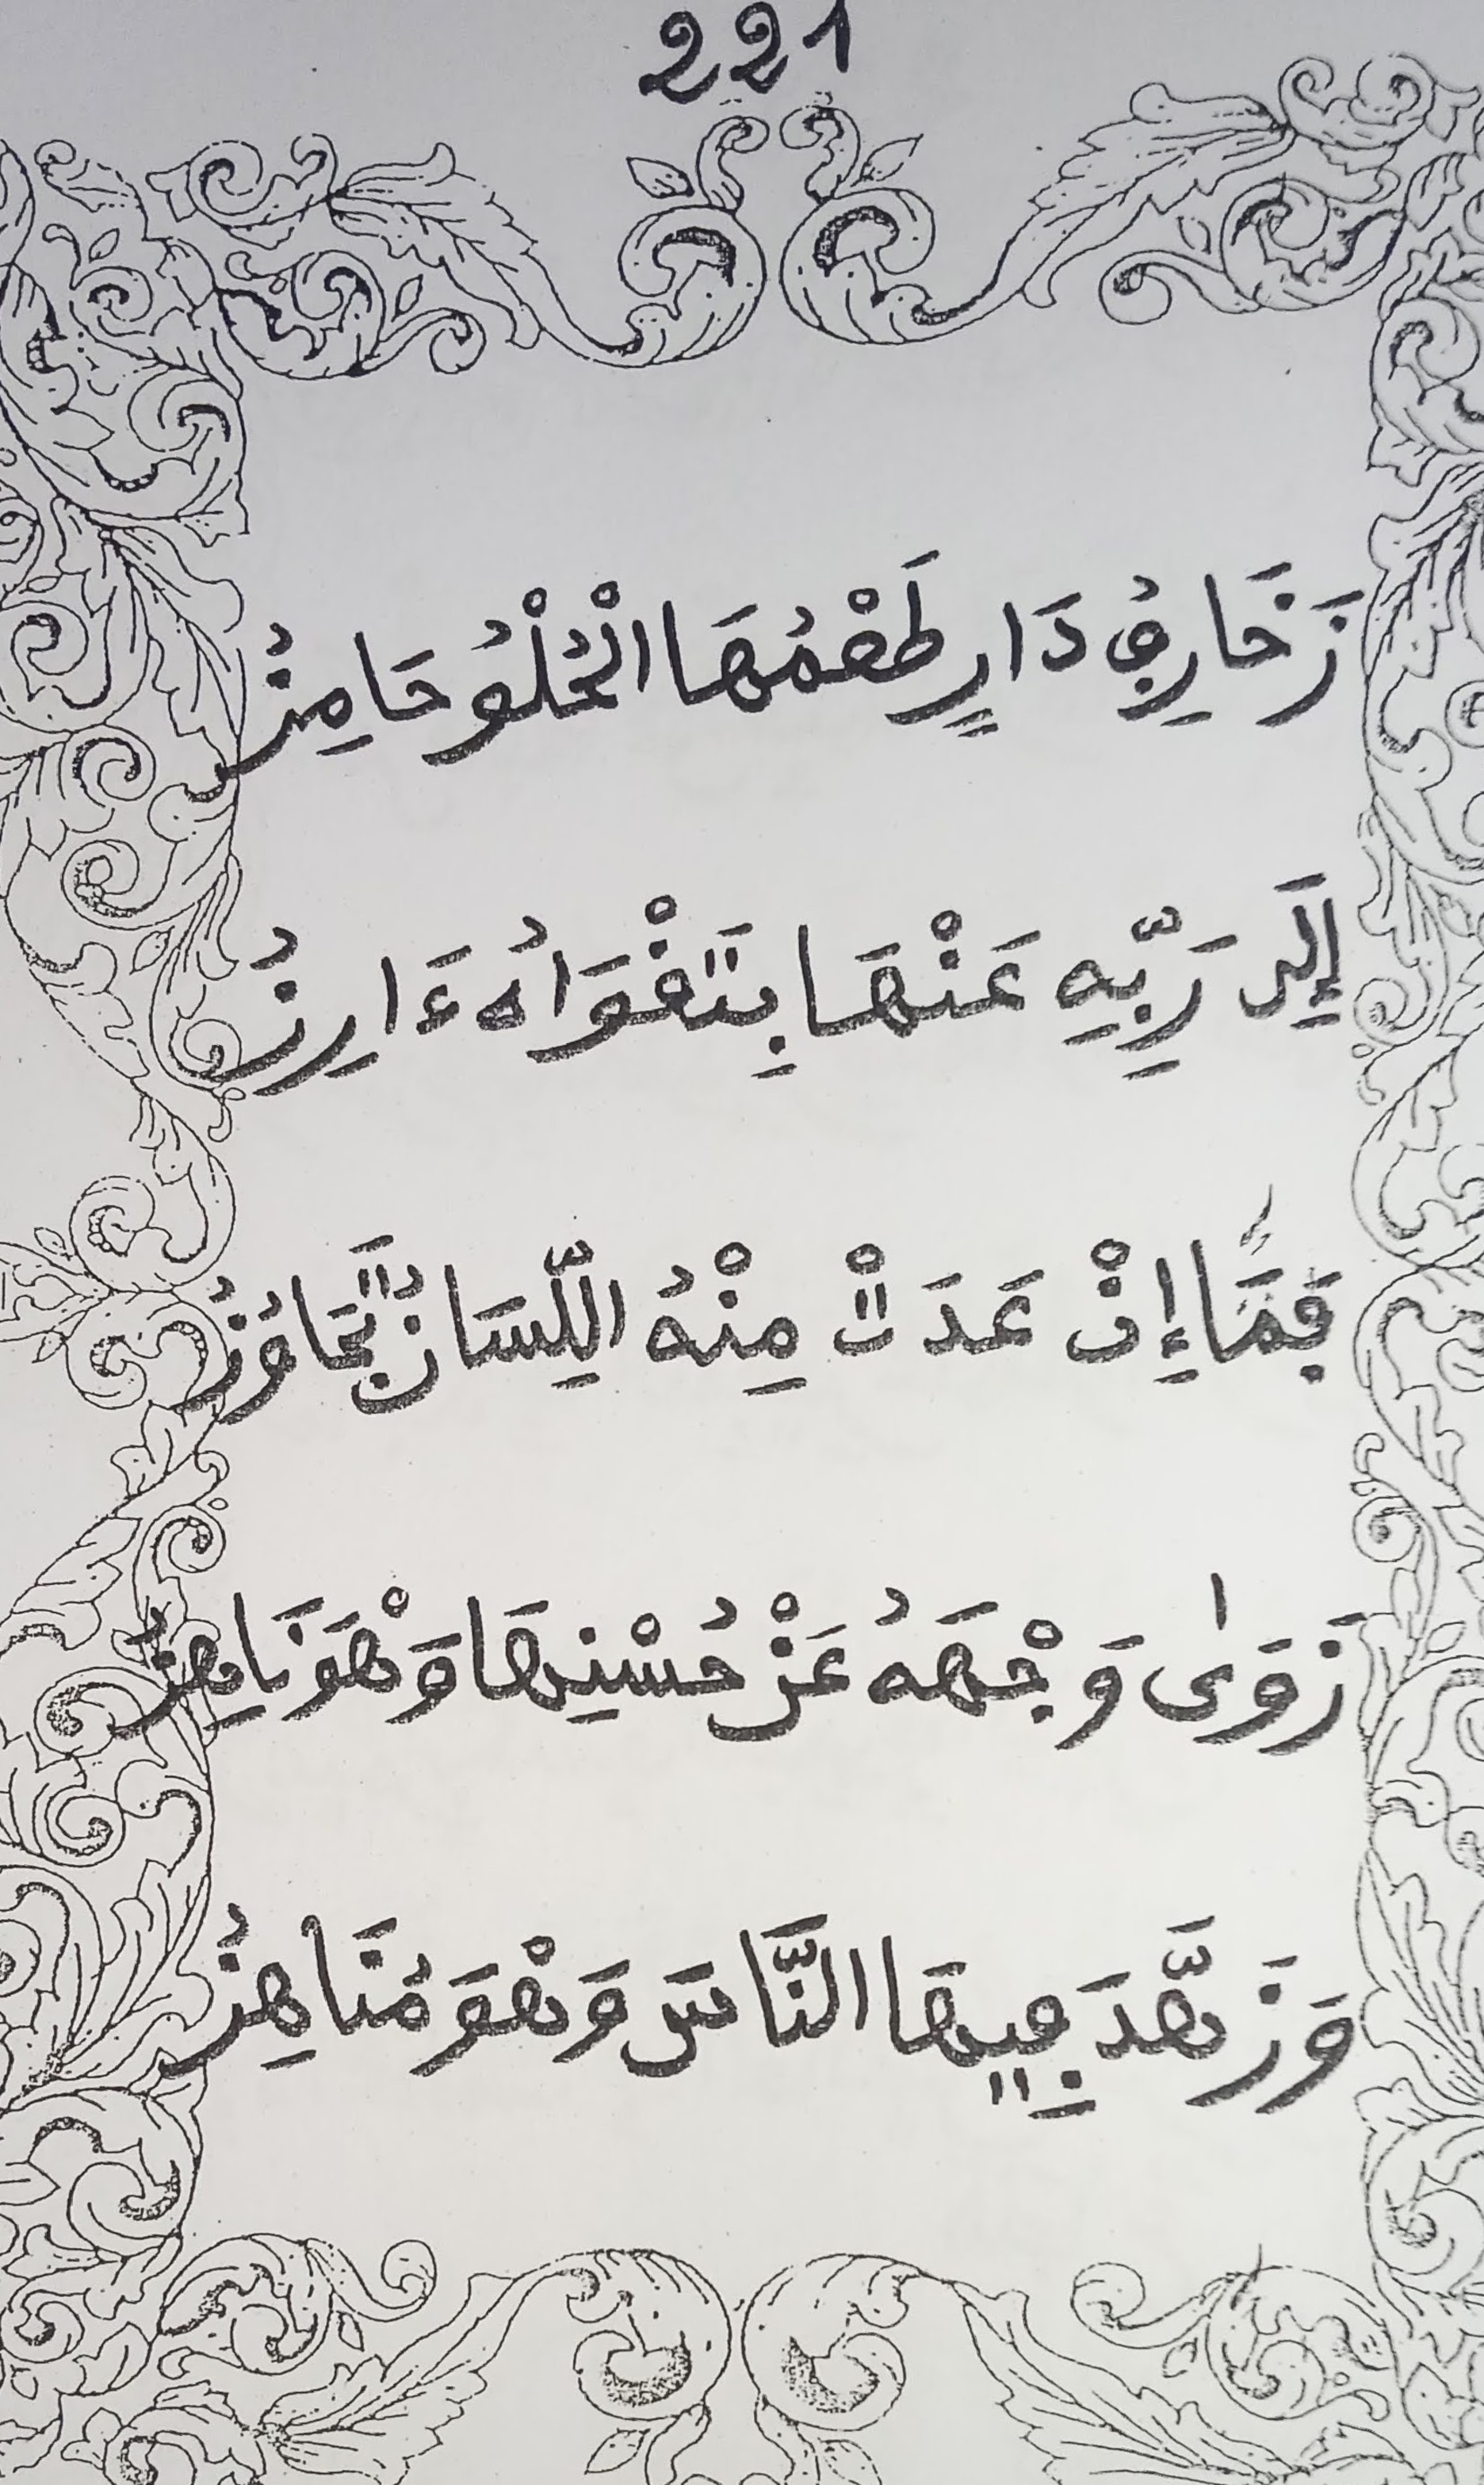 221
زَخَارِفُ دَارٍ طَعْمُهَا الْحُلْوُ حَامِزُ
إِلَى رَبِّهِ عَنْهَا بِتَقْوَاهُ ءَارِزُ
فَمَا إِنْ عَدَتْ مِنْهُ اللِّسَانُ تَجَاوُزُ
زَوَىٰ وَجْهَهُ عَنْ حُسْنِهَا وَهْوَ نَاهِزُ
وَزَهَّدَ فِيهَا النَّاسَ وَهْوَ مُنَاهِزُ